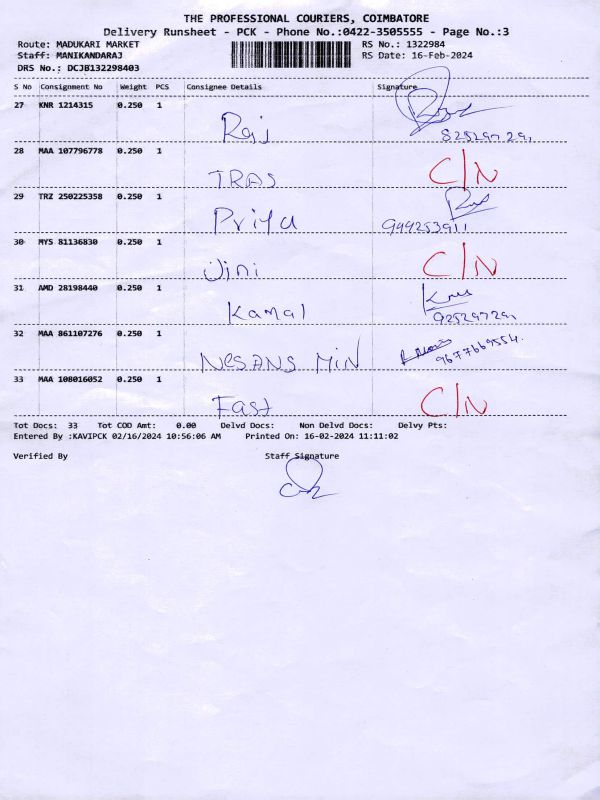 THE PROFESSIONAL COURIERS, COIMBATORE
Delivery Runsheet - PCK - Phone No.:0422-3505555 - Page No.:3
Route: MADUKARI MARKET RS No.: 1322984
Staff: MANIKANDARAJ RS Date: 16-Feb-2024
DRS No.: DCJB132298403
S No Consignment No Weight PCS Consignee Details Signature
27 KNR 1214315 0.250 1 Raj
28 MAA 107796778 0.250 1 TRAS C/N
29 TRZ 250225358 0.250 1 Priya 999253911
30 MYS 81136830 0.250 1 Jini C/N
31 AMD 28198440 0.250 1 Kamal
32 MAA 861107276 0.250 1 NESANS MIN 9677669554.
33 MAA 108016052 0.250 1 Fast C/N
Tot Docs: 33 Tot COD Amt: 0.00 Delvd Docs: Non Delvd Docs: Delvy Pts:
Entered By :KAVIPCK 02/16/2024 10:56:06 AM Printed On: 16-02-2024 11:11:02
Verified By Staff Signature